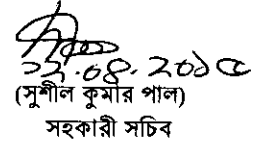 ১২.০৪.২০১৫
(সুশীল কুমার পাল)
সহকারী সচিব